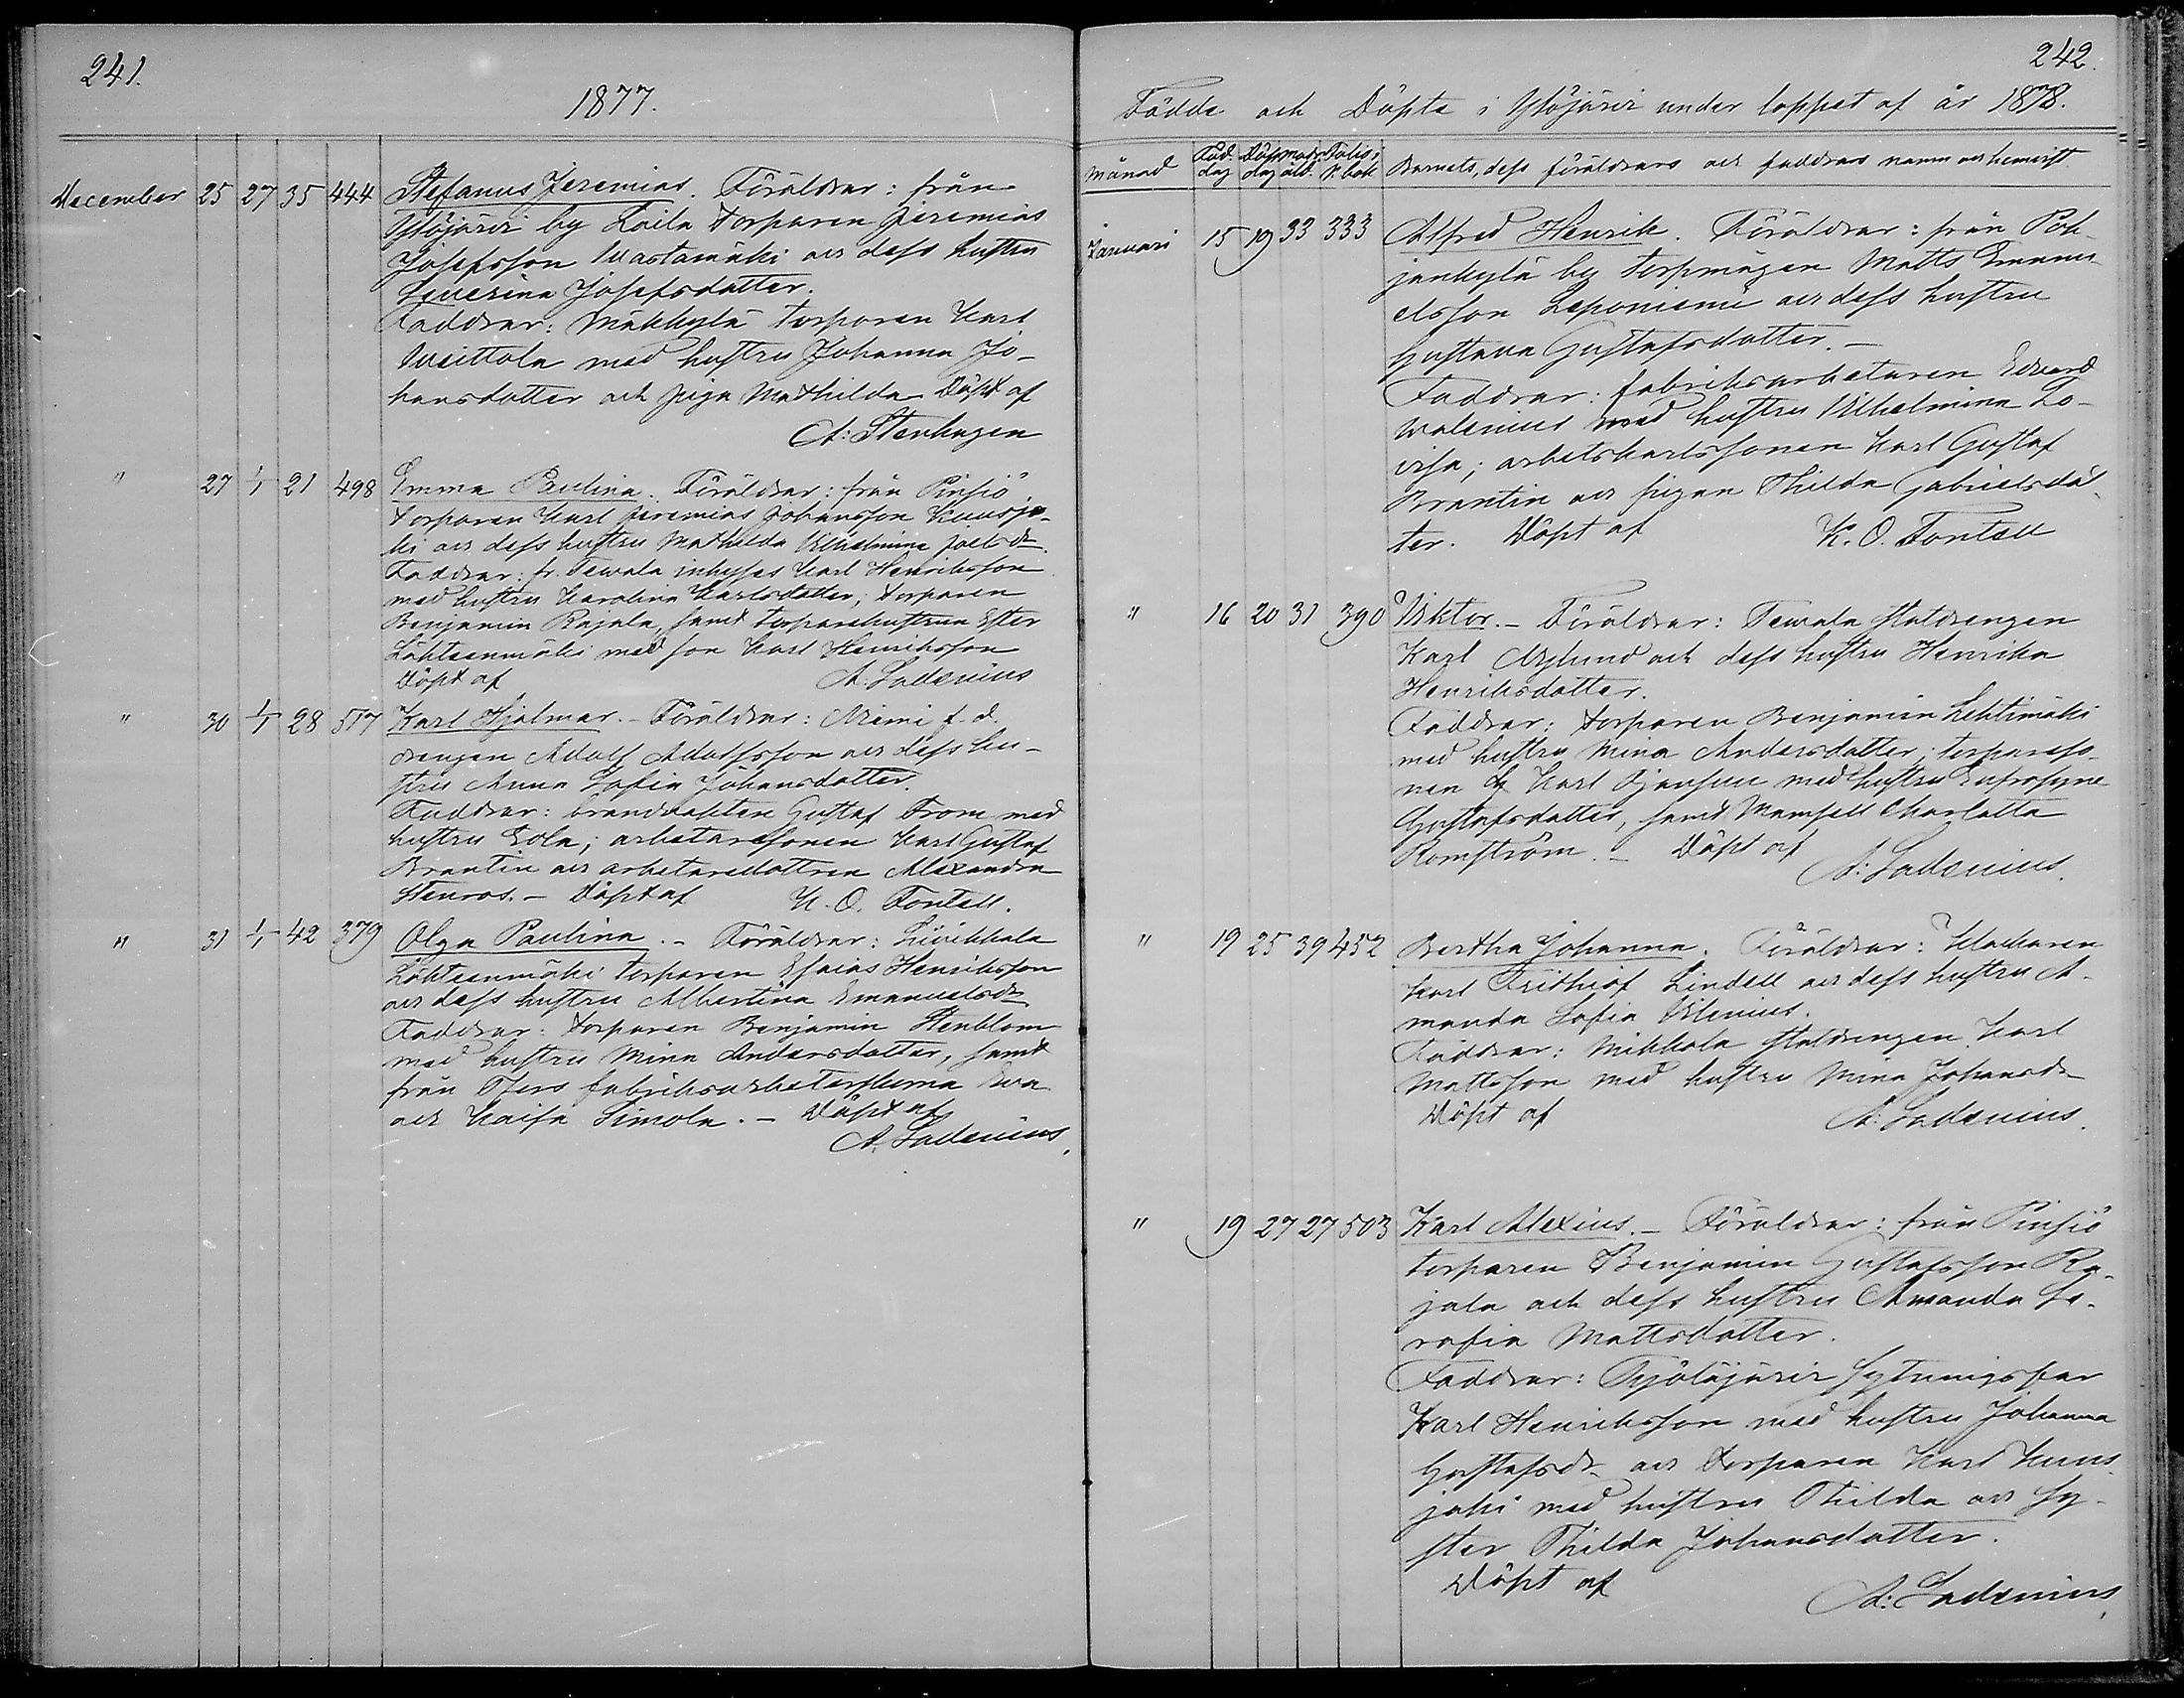 241.
1877.
December 25 27 35 444 Stefanus Jeremias. Föräldrar: från
Ylöjärvi by Laila torparen Jeremias
Josefsson Wastamäki och dess hustru
Severina Josefsdotter.
Faddrar: Mäkkylä torparen Karl
Weittola med hustru Johanna Jo-
hansdotter och piga Mathilda Döpt af
A: Stenhagen
" 27 1/1 21 498 Emma Paulina. Föräldrar: från Pinsiö
torparen Karl Jeremias Johansson Kuusjo-
ki och dess hustru Mathilda Vilhelmina Joelsdr.
Faddrar: fr. Tewala inhyses Karl Henriksson
med hustru Karolina Karlsdotter, torparen
Benjamin Rajala, samt torparehustrun Ester
Lähteenmäki med son Karl Henriksson
Döpt af A. Ladenius
" 30 1/1 28 517 Karl Hjalmar. - Föräldrar: Niemi f.d.
drengen Adolf Adolfsson och dess hu-
stru Anna Sofia Johansdotter.
Faddrar: brandvakten Gustaf From med
hustru Eola; arbetaresonen Karl Gustaf
Brantin och arbetaredottren Alexandra
Stenros. - Döpt af K. O. Fontell.
" 31 1/1 42 379 Olga Paulina. - Föräldrar: Liwikkala
Lähteenmäki torparen Esaias Henriksson
och dess hustru Albertina Emanuelsdr
Faddrar: torparen Benjamin Stenblom
med hustru Mina Andersdotter, samt
från Tfors fabriksarbeterskorna Eva
och Kaisa Simola. - Döpt af
A. Ladenius,
242.
Födde och Döpte i Ylöjärvi under loppet af år 1878.
Månad Föd. dag Döp. dag Mod. åld. Folio i K. bok Barnets, dess föräldrars och faddrars namn och hemvist
Januari 15 19 33 333 Alfred Henrik. Föräldrar: från Poh-
jankylä by torpmågen Matts Emanu-
elsson Leponiemi och dess hustru
Gustava Gustafsdotter. -
Faddrar: fabriksarbetaren Edvard
Walenius med hustru Vilhelmina Lo-
visa; arbetskarlssonen Karl Gustaf
Brantin och pigan Thilda Gabrielsdot-
ter. Döpt af K. O. Fontell
" 16 20 31 390 Viktor. - Föräldrar: Tewala statdrengen
Karl Nylund och dess hustru Henrika
Henriksdotter.
Faddrar: torparen Benjamin Lehtimäki
med hustru Mina Andersdotter, torpareso-
nen Karl Ojansuu med hustru Eufrosyne
Gustafsdotter, samt Mamsell Charlotta
Romström. - Döpt af
A: Ladenius.
" 19 25 39 452 Bertha Johanna. Föräldrar: Klockaren
Karl Frithiof Lindell och dess hustru A-
manda Sofia Vilenius.
Faddrar: Mikkola statdrengen Karl
Mattsson med hustru Mina Johansdr
Döpt af A: Ladenius.
" 19 27 27 503 Karl Alexius. - Föräldrar: från Pinsiö
torparen Benjamin Gustafsson Ra-
jala och dess hustru Amanda Se-
rafia Mattsdotter.
Faddrar: Kyöläjärvi sytningsfar
Karl Henriksson med hustru Johanna
Gustafsdr och torparen Karl Kuus-
joki med hustru Thilda och sy-
ster Thilda Johansdotter.
Döpt af A: Ladenius,